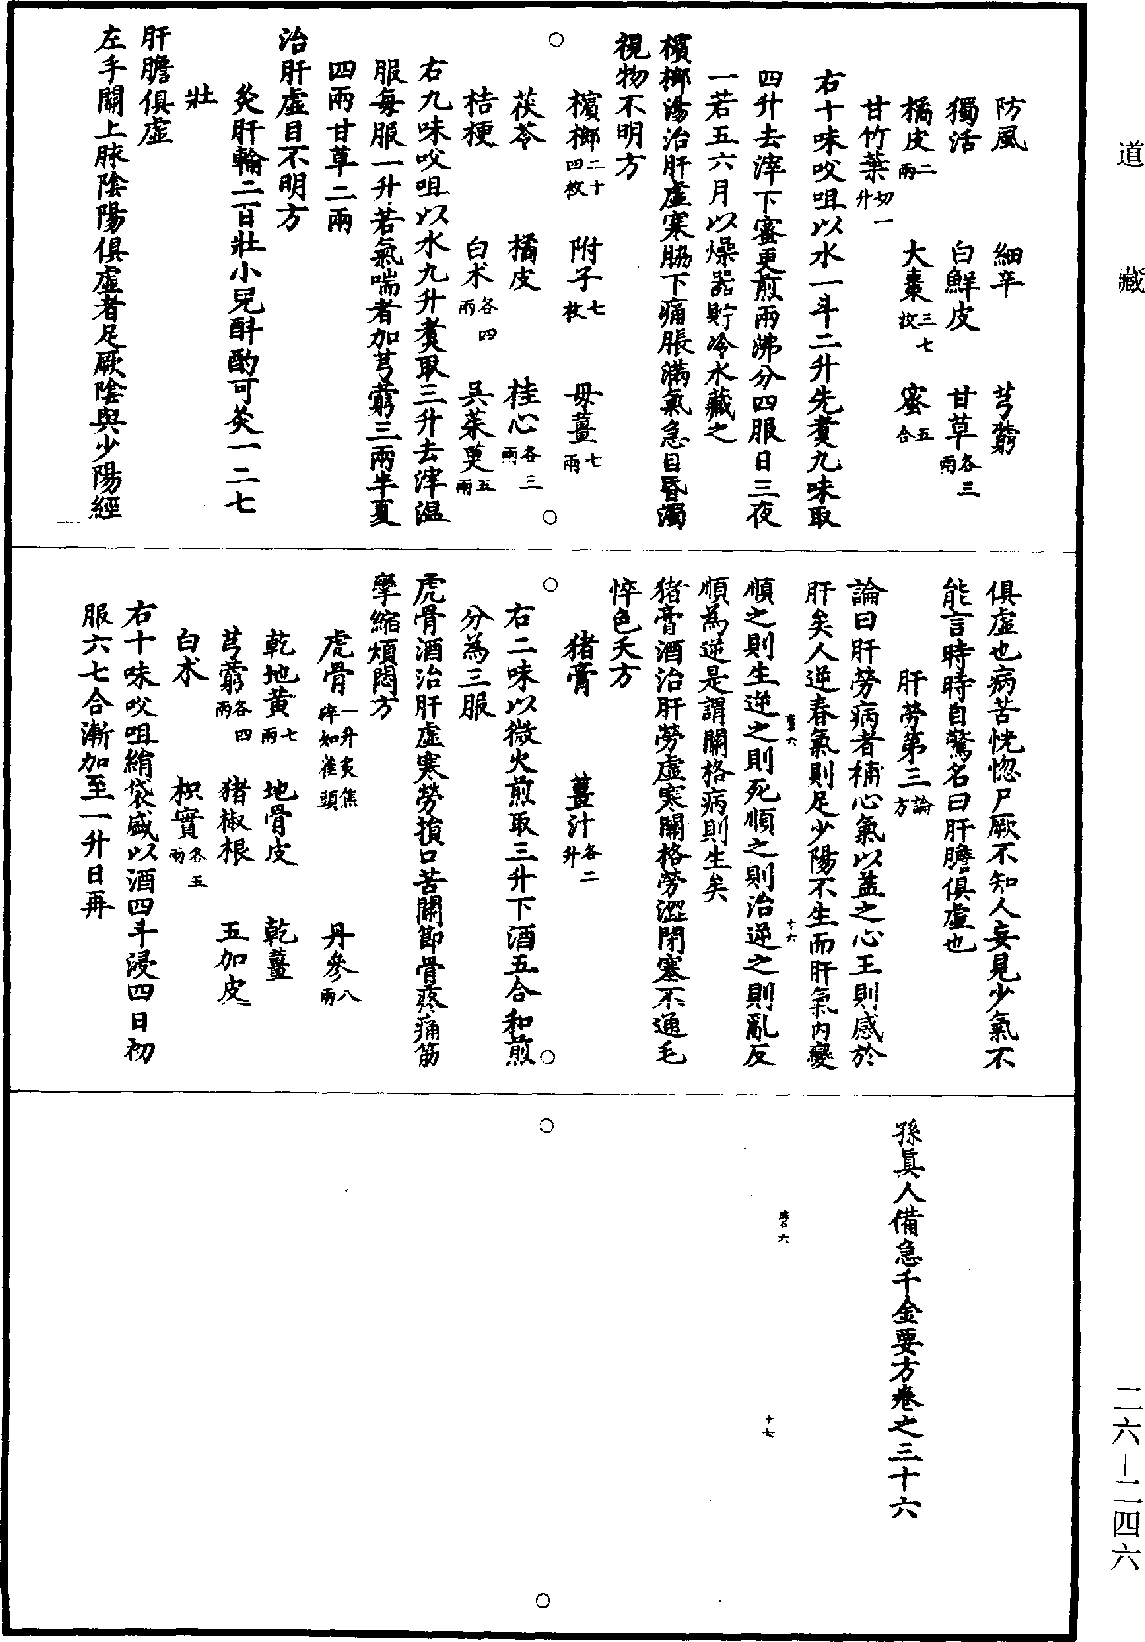 道藏
防風　細辛　芎藭
獨活　白鮮皮　甘草各三兩
橘皮二兩　大棗三七枚　蜜五合
甘竹葉切一升
右十味㕮咀以水一斗二升先煑九味取
四升去滓下蜜更煎兩沸分四服日三夜
一若五六月以燥器貯冷水藏之
檳榔湯治肝虛寒脇下痛脹滿氣急目昏濁
視物不明方
檳榔二十四枚　附子七枚　母薑七兩
茯苓　橘皮　桂心各三兩
桔梗　白术各四兩　吳茱萸五兩
右九味㕮咀以水九升煑取三升去滓温
服每服一升若氣喘者加芎藭三兩半夏
四兩甘草二兩
治肝虛目不明方
灸肝輸二百壯小兒斟酌可灸一二七
壯
肝膽俱虛
左手關上脉陰陽俱虛者足厥陰與少陽經
俱虛也病苦恍惚尸厥不知人妄見少氣不
能言時時自驚名曰肝膽俱虛也
肝勞第三論方
論曰肝勞病者補心氣以益之心王則感於
肝矣人逆春氣則足少陽不生而肝氣內變
十六
順之則生逆之則死順之則治逆之則亂反
順為逆是謂關格病則生矣
猪膏酒治肝勞虛寒關格勞澀閉塞不通毛
悴色夭方
猪膏　薑汁各二升
右二味以微火煎取三升下酒五合和煎
分為三服
虎骨酒治肝虛寒勞損口苦關節骨疼痛筋
攣縮煩悶方
虎骨一升炙焦碎如雀頭　丹參八兩
乾地黃七兩　地骨皮　乾薑
芎藭各四兩　猪椒根　五加皮
白术　枳實各五兩
右十味㕮咀絹袋盛以酒四斗浸四日初
服六七合漸加至一升日再
孫真人備急千金要方卷之三十六
十七
二六—二四六